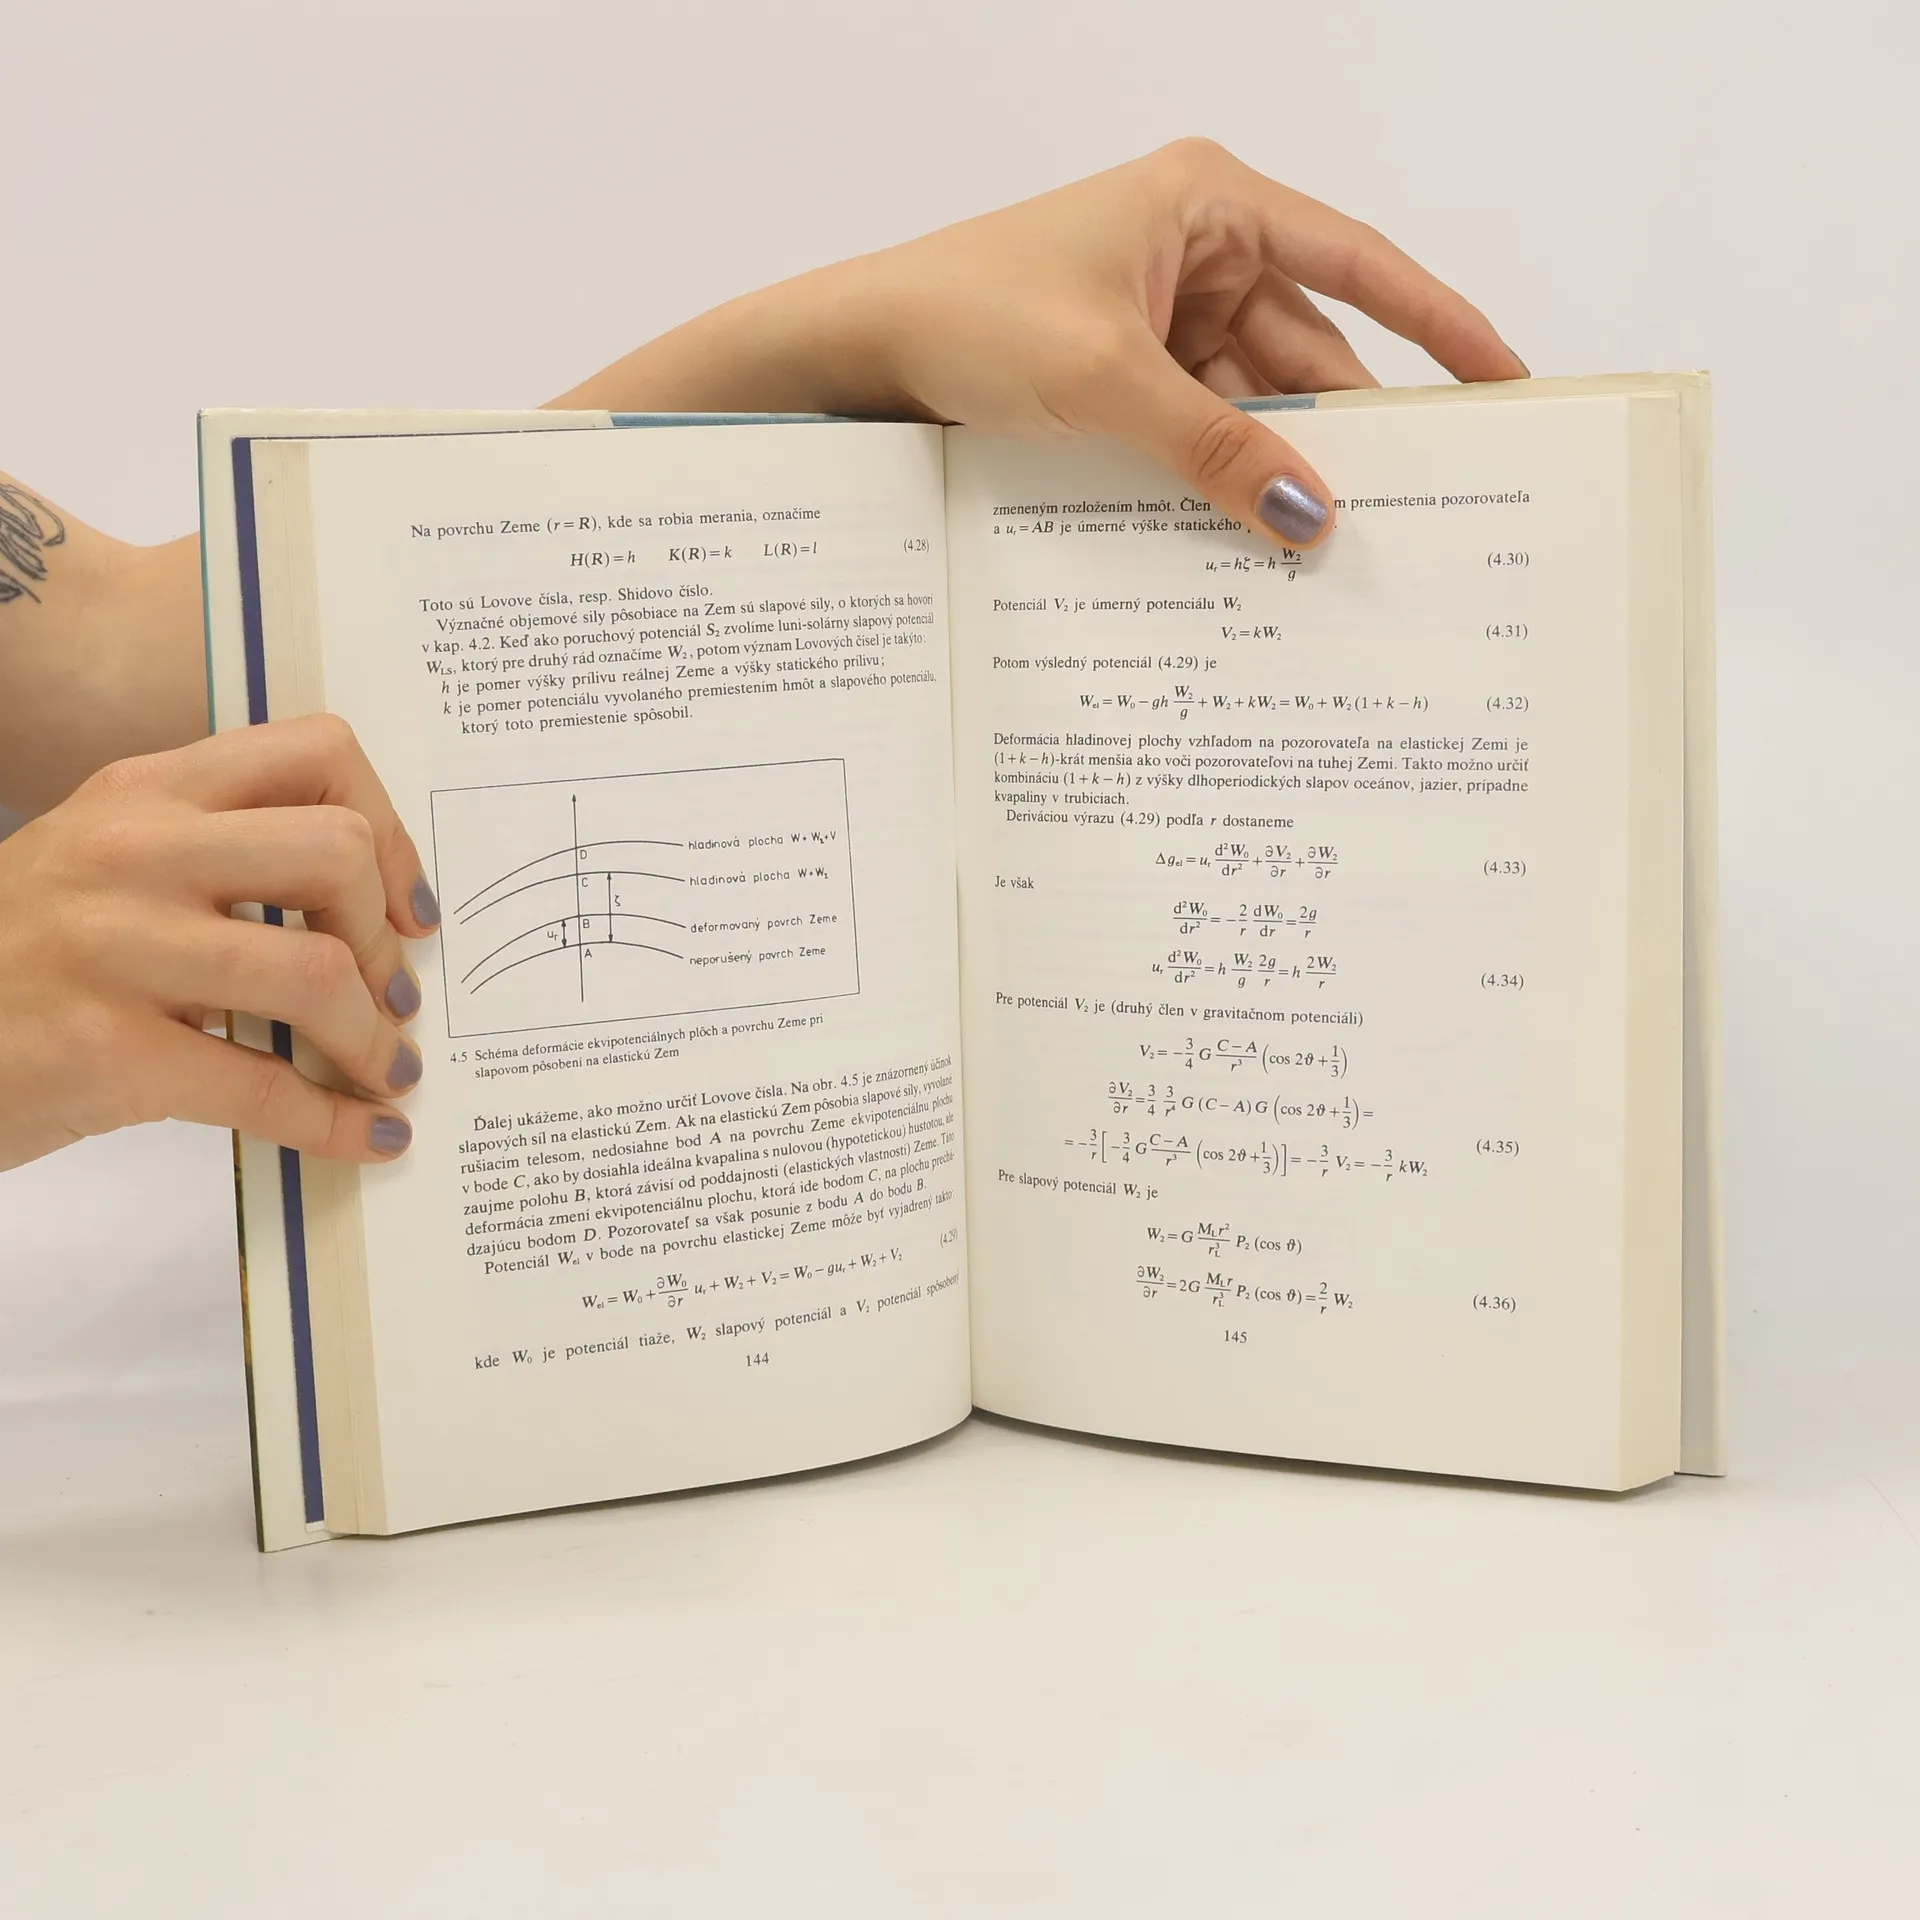 Na povrchu Zeme (r = R), kde sa robia merania, označíme
H(R) = h K(R) = k L(R) = l (4.28)
Toto sú Lovove čísla, resp. Shidovo číslo.
Význačné objemové sily pôsobiace na Zem sú slapové sily, o ktorých sa hovorí
v kap. 4.2. Keď ako poruchový potenciál S₂ zvolíme luni-solárny slapový potenciál
W_LS, ktorý pre druhý rád označíme W₂, potom význam Lovových čísel je takýto:
h je pomer výšky prílivu reálnej Zeme a výšky statického prílivu;
k je pomer potenciálu vyvolaného premiestením hmôt a slapového potenciálu,
ktorý toto premiestenie spôsobil.
D hladinová plocha W + W₂ + V
C hladinová plocha W + W₂
ζ
B deformovaný povrch Zeme
u_r
A neporušený povrch Zeme
4.5 Schéma deformácie ekvipotenciálnych plôch a povrchu Zeme pri
slapovom pôsobení na elastickú Zem
Ďalej ukážeme, ako možno určiť Lovove čísla. Na obr. 4.5 je znázornený účinok
slapových síl na elastickú Zem. Ak na elastickú Zem pôsobia slapové sily, vyvolané
rušiacim telesom, nedosiahne bod A na povrchu Zeme ekvipotenciálnu plochu
v bode C, ako by dosiahla ideálna kvapalina s nulovou (hypotetickou) hustotou, ale
zaujme polohu B, ktorá závisí od poddajnosti (elastických vlastností) Zeme. Táto
deformácia zmení ekvipotenciálnu plochu, ktorá ide bodom C, na plochu prechá-
dzajúcu bodom D. Pozorovateľ sa však posunie z bodu A do bodu B.
Potenciál W_el v bode na povrchu elastickej Zeme môže byť vyjadrený takto:
W_el = W₀ + ∂W₀/∂r u_r + W₂ + V₂ = W₀ − gu_r + W₂ + V₂ (4.29)
kde W₀ je potenciál tiaže, W₂ slapový potenciál a V₂ potenciál spôsobený
144
zmeneným rozložením hmôt. Člen m premiestenia pozorovateľa
a u_r = AB je úmerné výške statického
u_r = hζ = h W₂/g (4.30)
Potenciál V₂ je úmerný potenciálu W₂
V₂ = kW₂ (4.31)
Potom výsledný potenciál (4.29) je
W_el = W₀ − gh W₂/g + W₂ + kW₂ = W₀ + W₂ (1 + k − h) (4.32)
Deformácia hladinovej plochy vzhľadom na pozorovateľa na elastickej Zemi je
(1 + k − h)-krát menšia ako voči pozorovateľovi na tuhej Zemi. Takto možno určiť
kombináciu (1 + k − h) z výšky dlhoperiodických slapov oceánov, jazier, prípadne
kvapaliny v trubiciach.
Deriváciou výrazu (4.29) podľa r dostaneme
Δg_el = u_r d²W₀/dr² + ∂V₂/∂r + ∂W₂/∂r (4.33)
Je však
d²W₀/dr² = −2/r dW₀/dr = 2g/r
u_r d²W₀/dr² = h W₂/g 2g/r = h 2W₂/r (4.34)
Pre potenciál V₂ je (druhý člen v gravitačnom potenciáli)
V₂ = −3/4 G C − A/r³ (cos 2ϑ + 1/3)
∂V₂/∂r = 3/4 3/r⁴ G (C − A) G (cos 2ϑ + 1/3) =
= −3/r [−3/4 G C − A/r³ (cos 2ϑ + 1/3)] = −3/r V₂ = −3/r kW₂ (4.35)
Pre slapový potenciál W₂ je
W₂ = G M_L r²/r_L³ P₂ (cos ϑ)
∂W₂/∂r = 2G M_L r/r_L³ P₂ (cos ϑ) = 2/r W₂ (4.36)
145